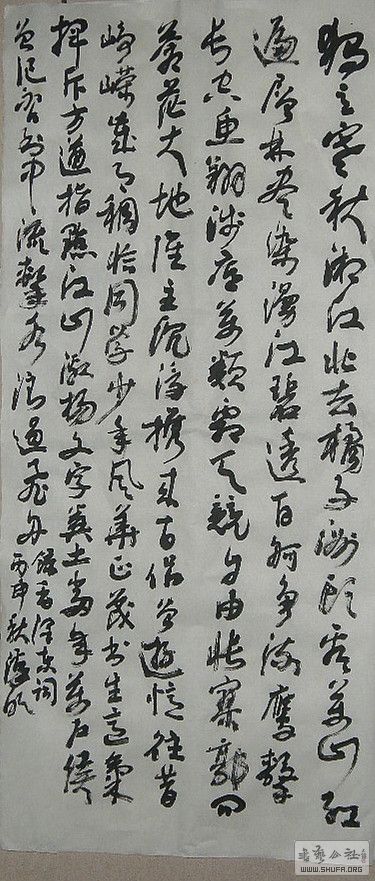 獨立寒秋湘江北去橘子洲頭看萬山紅
遍層林盡染漫江碧透百舸争流鷹擊
長空魚翔淺底萬類霜天競自由悵寥廓問
蒼茫大地誰主沉浮携來百侣曾遊憶往昔
崢嶸歲月稠恰同學少年風華正茂書生意氣
揮斥方遒指點江山激揚文字糞土當年萬户侯
曾記否到中流擊水浪遏飛舟
錄毛澤東詞
丙申秋
書法公社
WWW.SHUFA.ORG